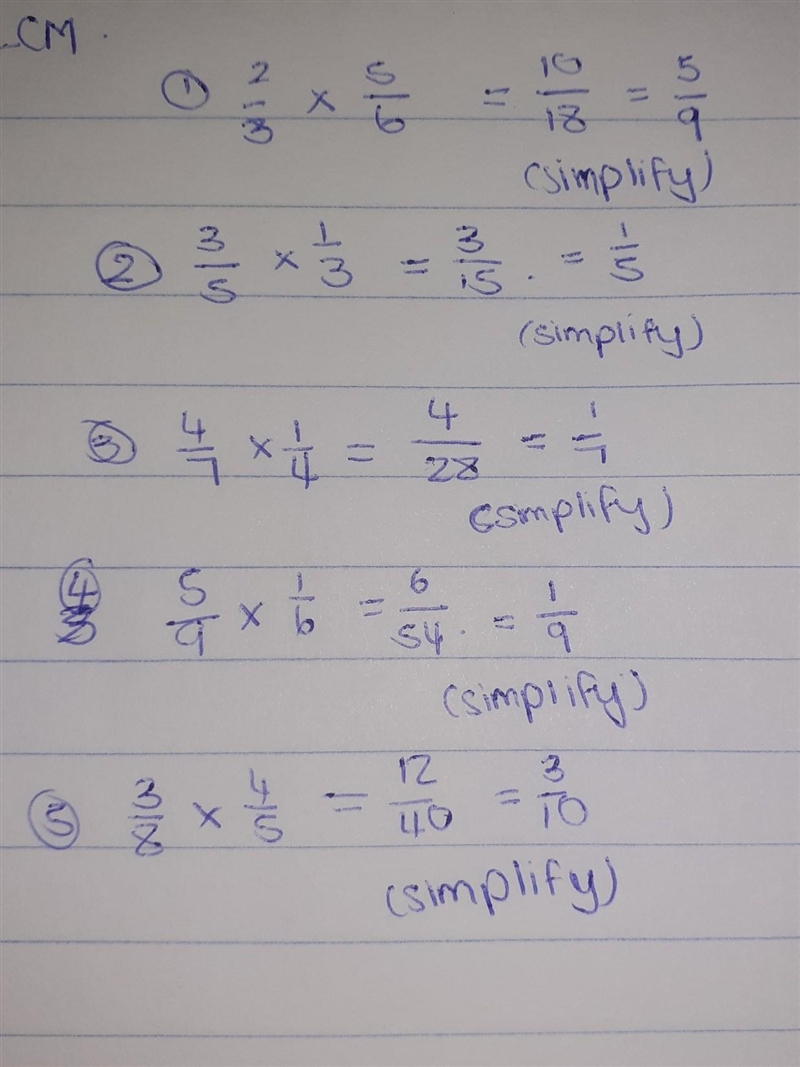 CM.
① 2/3 × 5/6 = 10/18 = 5/9
(simplify)
② 3/5 × 1/3 = 3/15. = 1/5
(simplify)
③ 4/7 × 1/4 = 4/28 = 1/7
(simplify)
④ 5/9 × 1/6 = 6/54. = 1/9
(simplify)
⑤ 3/8 × 4/5 = 12/40 = 3/10
(simplify)